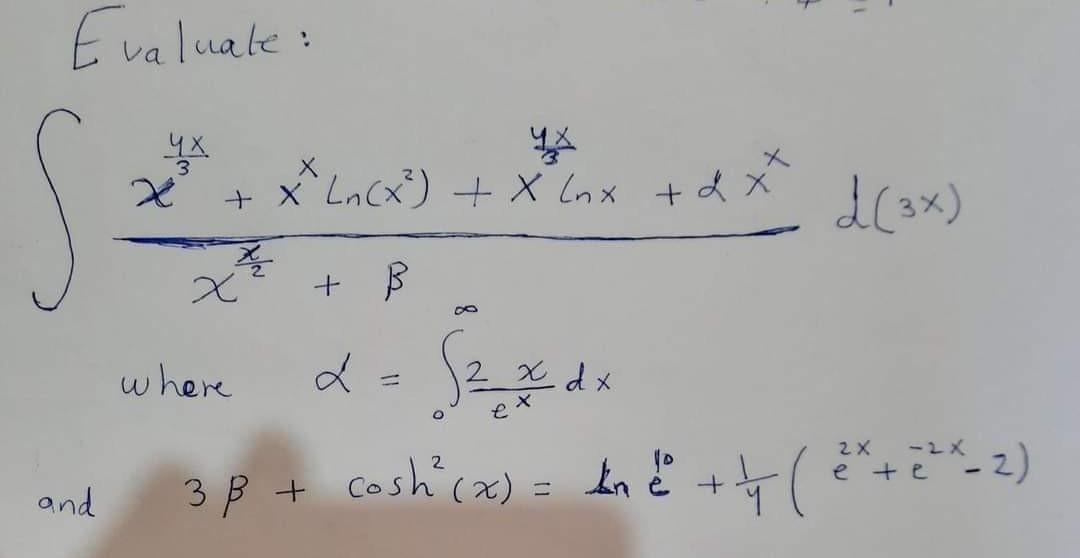 Evaluate:
∫ (x^(4x/3) + x^x Ln(x²) + x^(4x/3) lnx + α x^x) / (x^(x/2) + β) d(3x)
where α = ∫₀^∞ 2x/e^x dx
and 3β + cosh²(x) = ln e^10 + 1/4 (e^(2x) + e^(-2x) - 2)